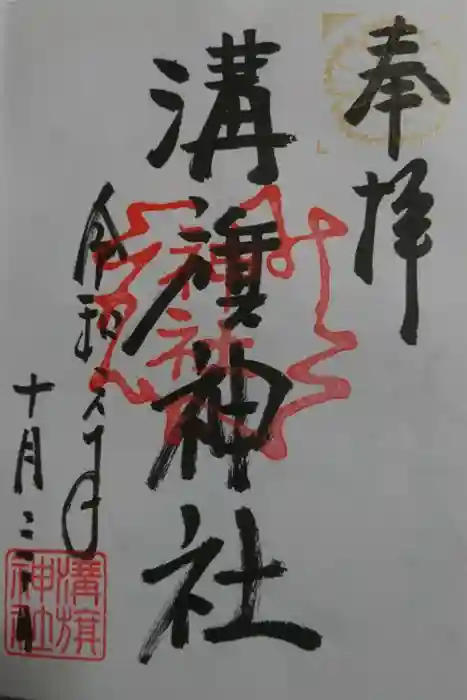 奉拝
溝旗神社
令和六年
十月二十
溝旗
神社
神社